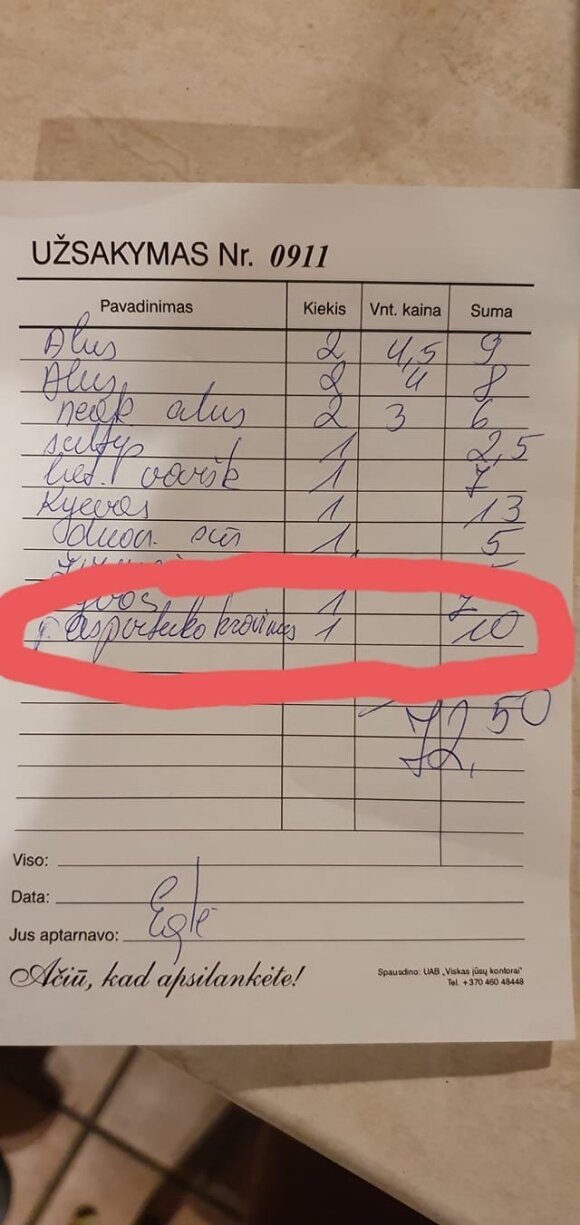 UŽSAKYMAS Nr. 0911
Pavadinimas Kiekis Vnt. kaina Suma
Alus 2 4,5 9
Alus 2 4 8
neak alus 2 3 6
sultys 1 2,5
liet. varšk 1 7
Kyevas 1 13
duon. sūr 1 5
1 7
paspirtuko krovimas 1 10
72,50
Viso:
Data:
Jus aptarnavo: Eglė
Ačiū, kad apsilankėte!
Spausdino: UAB „Viskas jūsų kontorai"
Tel. +370 460 48448